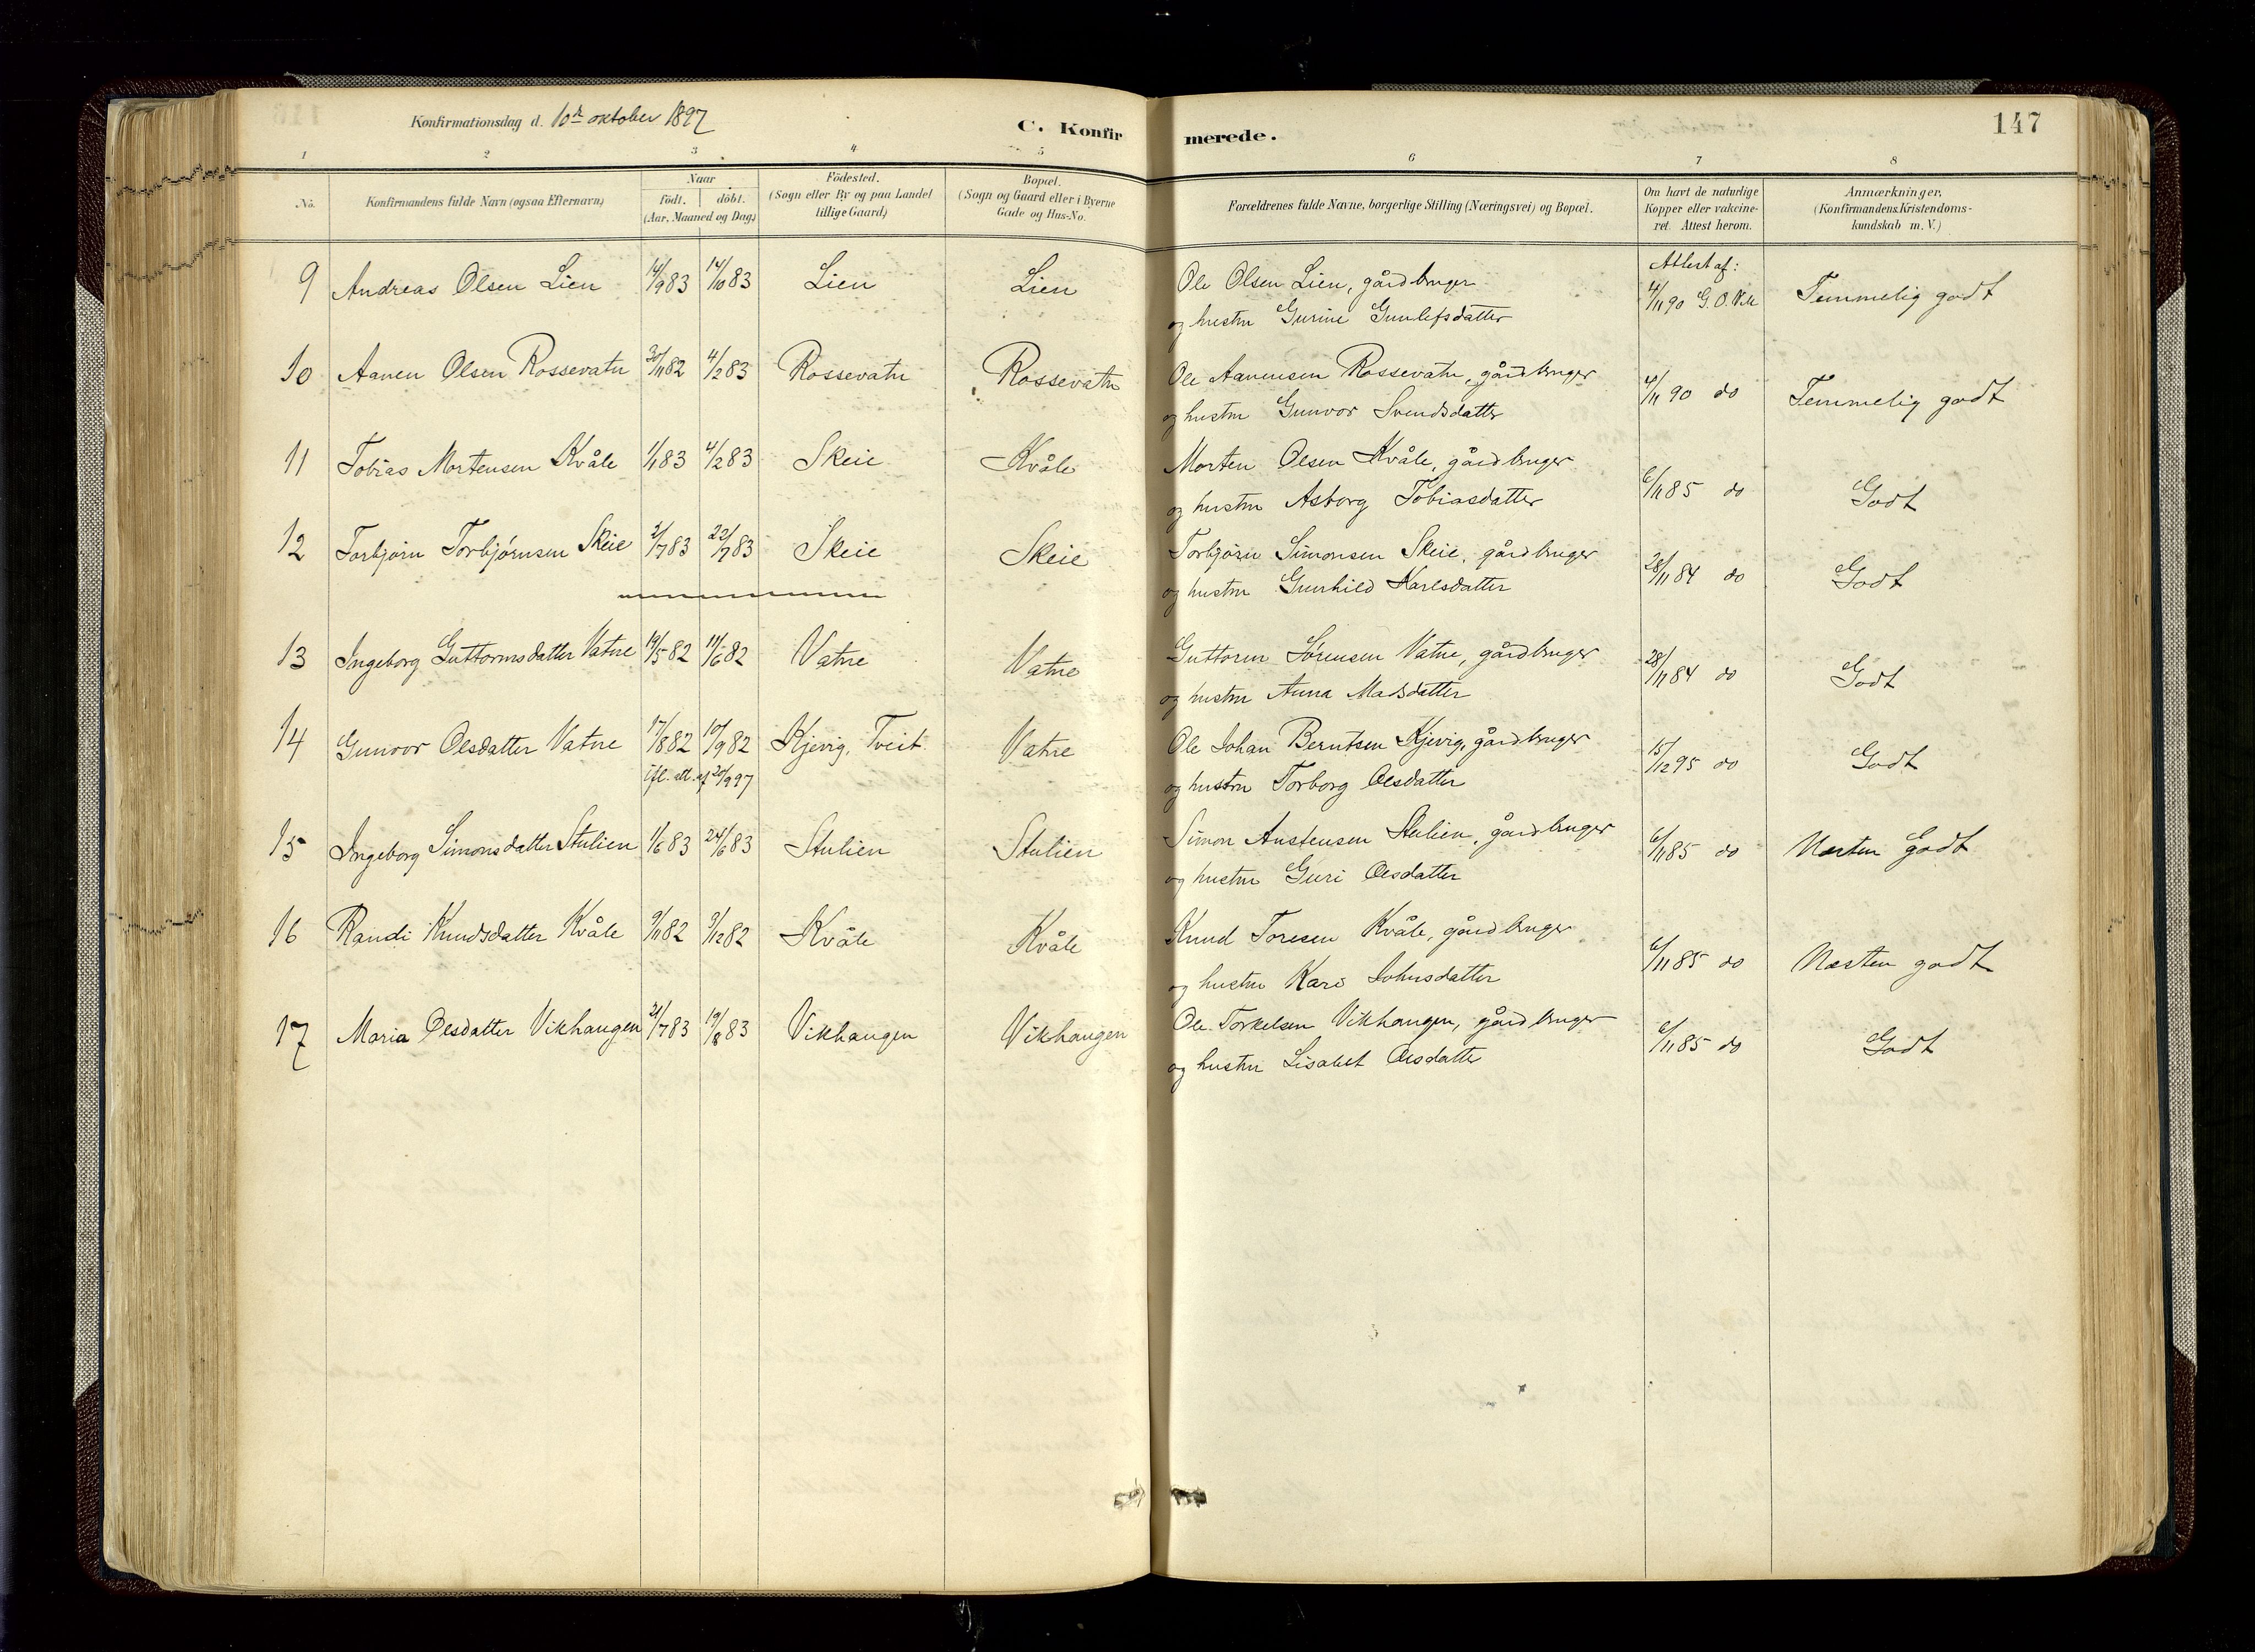 Konfirmationsdag d. 10de oktober 1897
C. Konfirmerede.
147
1 2 3 4 5 6 7 8
No. Konfirmandens fulde Navn (ogsaa Efternavn) Naar födt. döbt. (Aar, Maaned og Dag) Födested. (Sogn eller By og paa Landet tillige Gaard) Bopæl. (Sogn og Gaard eller i Byerne Gade og Hus-No. Forældrenes fulde Navne, borgerlige Stilling (Næringsvei) og Bopæl. Om havt de naturlige Kopper eller vakcineret. Attest herom. Anmærkninger. (Konfirmandens Kristendomskundskab m. V.)
9 Andreas Olsen Lien 14/9 83 14/10 83 Lien Lien Ole Olsen Lien, gårdbruger Attest af:
og hustru Gurine Gunlefsdatter 4/11 90 G. O. Temmelig godt
10 Aanen Olsen Rossevatn 30/11 82 4/2 83 Rossevatn Rossevatn Ole Aanensen Rossevatn, gårdbruger
og hustru Gunvor Svendsdatter 4/11 90 do Temmelig godt
11 Tobias Mortensen Kvåle 1/1 83 4/2 83 Skeie Kvåle Morten Olsen Kvåle, gårdbruger
og hustru Asborg Tobiasdatter 6/11 85 do Godt
12 Torbjørn Torbjørnsen Skeie 2/7 83 22/7 83 Skeie Skeie Torbjørn Simonsen Skeie, gårdbruger
og hustru Gunhild Karlsdatter 28/11 84 do Godt
13 Ingeborg Guttormsdatter Vatne 19/5 82 11/6 82 Vatne Vatne Guttorm Sørensen Vatne, gårdbruger
og hustru Anna Madsdatter 28/11 84 do Godt
14 Gunvor Olsdatter Vatne 17/8 82 10/9 82 Kjevig, Tveit Vatne Ole Johan Berntsen Kjevig, gårdbruger
ifl. att. af 20/9 97 og hustru Torborg Olsdatter 15/12 95 do Godt
15 Ingeborg Simonsdatter Stulien 1/6 83 24/6 83 Stulien Stulien Simon Anstensen Stulien, gårdbruger
og hustru Guri Olsdatter 6/11 85 do Næsten godt
16 Randi Knudsdatter Kvåle 9/11 82 3/12 82 Kvåle Kvåle Knud Toresen Kvåle, gårdbruger
og hustru Kari Johnsdatter 6/11 85 do Næsten godt
17 Maria Olsdatter Vikhaugen 21/7 83 19/8 83 Vikhaugen Vikhaugen Ole Torkelsen Vikhaugen, gårdbruger
og hustru Lisabet Olsdatter 6/11 85 do Godt